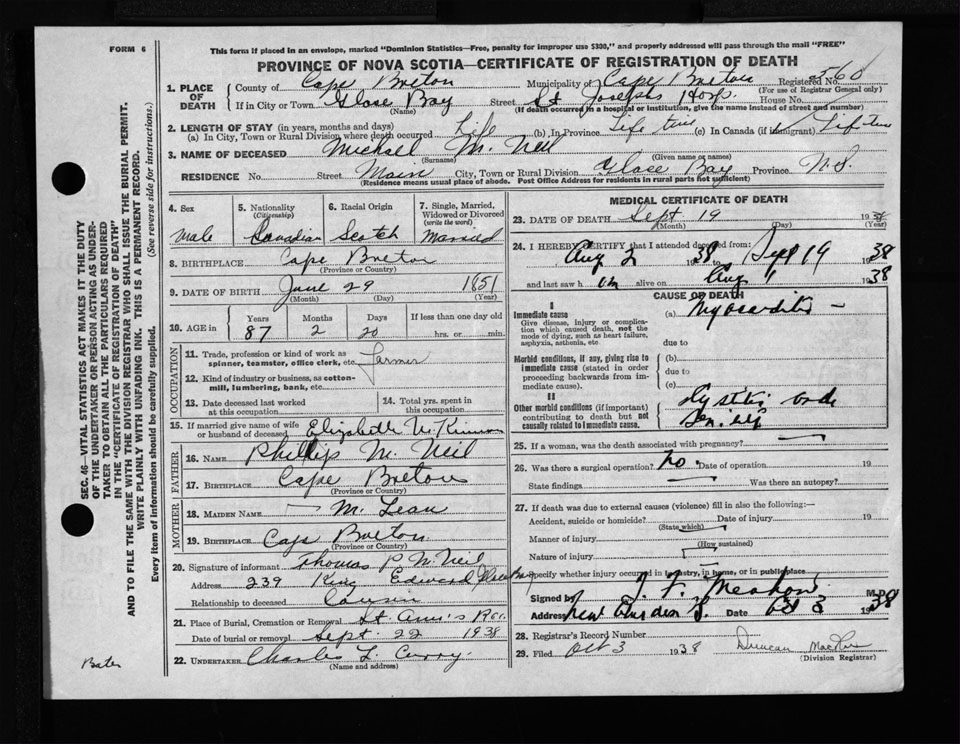 FORM 6
This form if placed in an envelope, marked "Dominion Statistics—Free, penalty for improper use $300," and properly addressed will pass through the mail "FREE"
PROVINCE OF NOVA SCOTIA—CERTIFICATE OF REGISTRATION OF DEATH
1. PLACE OF DEATH County of Cape Breton Municipality of Cape Breton Registered No. 560
(For use of Registrar General only)
If in City or Town Glace Bay Street St Josephs Hosp. House No.
(Name) (If death occurred in a hospital or institution, give the name instead of street and number)
2. LENGTH OF STAY (in years, months and days)
(a) In City, Town or Rural Division where death occurred Life (b) In Province Life time (c) In Canada (if immigrant) Life time
3. NAME OF DECEASED Michael Mc Neil
(Surname) (Given name or names)
RESIDENCE No. Street Main City, Town or Rural Division Glace Bay Province N.S.
(Residence means usual place of abode. Post Office Address for residents in rural parts not sufficient)
4. Sex
Male
5. Nationality
(Citizenship)
Canadian
6. Racial Origin
Scotch
7. Single, Married, Widowed or Divorced
(write the word)
Married
8. BIRTHPLACE Cape Breton
(Province or Country)
9. DATE OF BIRTH June 29 1851
(Month) (Day) (Year)
10. AGE in
Years Months Days If less than one day old
87 2 20 hrs. or min.
OCCUPATION
11. Trade, profession or kind of work as spinner, teamster, office clerk, etc. Farmer
12. Kind of industry or business, as cotton-mill, lumbering, bank, etc.
13. Date deceased last worked at this occupation
14. Total yrs. spent in this occupation
15. If married give name of wife or husband of deceased Elizabeth
FATHER
16. Name Phillip Mc Neil
17. BIRTHPLACE Cape Breton
(Province or Country)
MOTHER
18. MAIDEN NAME Mc Lean
19. BIRTHPLACE Cape Breton
(Province or Country)
20. Signature of informant Thomas P McNeil
Address 239 King Edward Glace Bay
Relationship to deceased Cousin
21. Place of Burial, Cremation or Removal St Ann's
Date of burial or removal Sept. 22 1938
22. UNDERTAKER Charles L Curry.
(Name and address)
MEDICAL CERTIFICATE OF DEATH
23. DATE OF DEATH Sept 19 1938
(Month) (Day) (Year)
24. I HEREBY CERTIFY that I attended deceased from:
Aug 2 1938 to Sept 19 1938
and last saw him alive on Aug 1 1938
CAUSE OF DEATH
I
Immediate cause (a) Myocarditis
Give disease, injury or complication which caused death, not the mode of dying, such as heart failure, asphyxia, asthenia, etc.
due to
Morbid conditions, if any, giving rise to immediate cause (stated in order proceeding backwards from immediate cause).
(b)
due to
(c)
II
Other morbid conditions (if important) contributing to death but not causally related to immediate cause.
Cystitis and
Senility
25. If a woman, was the death associated with pregnancy?
26. Was there a surgical operation? No. Date of operation 19
State findings Was there an autopsy?
27. If death was due to external causes (violence) fill in also the following:—
Accident, suicide or homicide? Date of injury 19
(State which)
Manner of injury
(How sustained)
Nature of injury
Specify whether injury occurred in industry, in home, or in public place
Signed by M.D.
Address New Aberdeen Date Oct 3 1938
28. Registrar's Record Number
29. Filed Oct 3 1938 Duncan
(Division Registrar)
SEC. 46—VITAL STATISTICS ACT MAKES IT THE DUTY
OF THE UNDERTAKER OR PERSON ACTING AS UNDER-
TAKER TO OBTAIN ALL THE PARTICULARS REQUIRED
IN THE "CERTIFICATE OF REGISTRATION OF DEATH"
AND TO FILE THE SAME WITH THE DIVISION REGISTRAR WHO SHALL ISSUE THE BURIAL PERMIT.
WRITE PLAINLY WITH UNFADING INK. THIS IS A PERMANENT RECORD.
Every item of information should be carefully supplied. (See reverse side for instructions.)